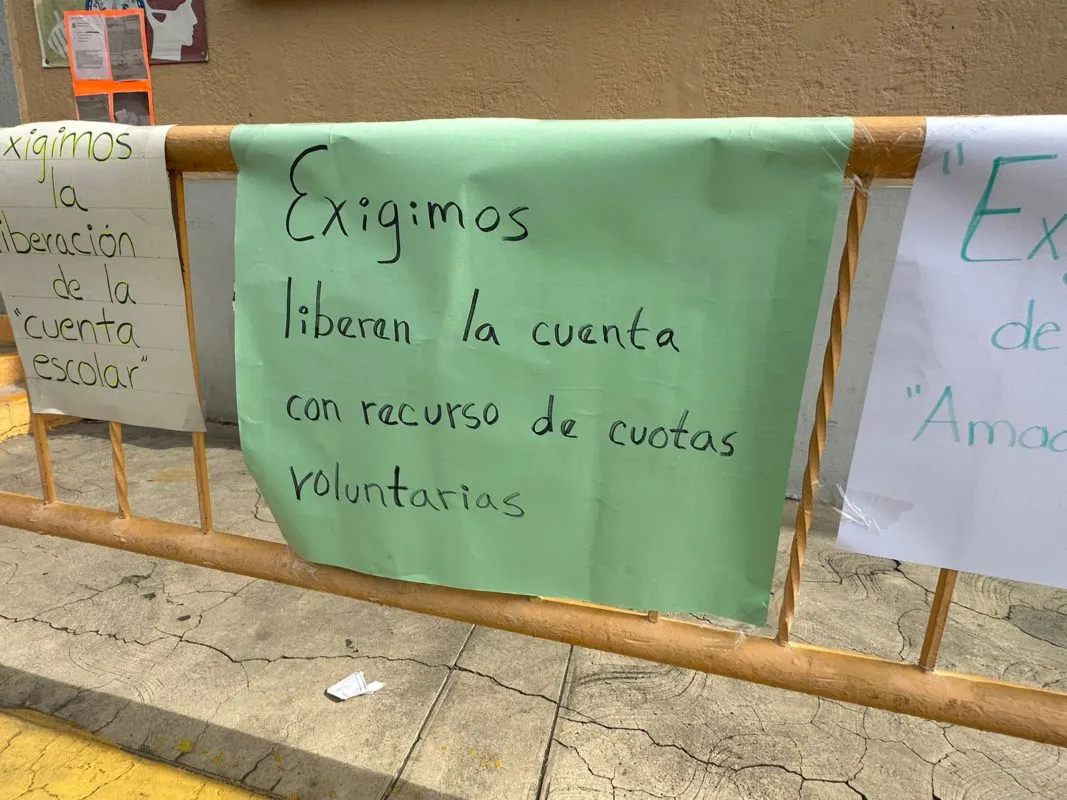 xigimos
la
iberación
de la
"cuenta
escolar"
Exigimos
liberen la cuenta
con recurso de cuotas
voluntarias
"Ex
de
"Amad